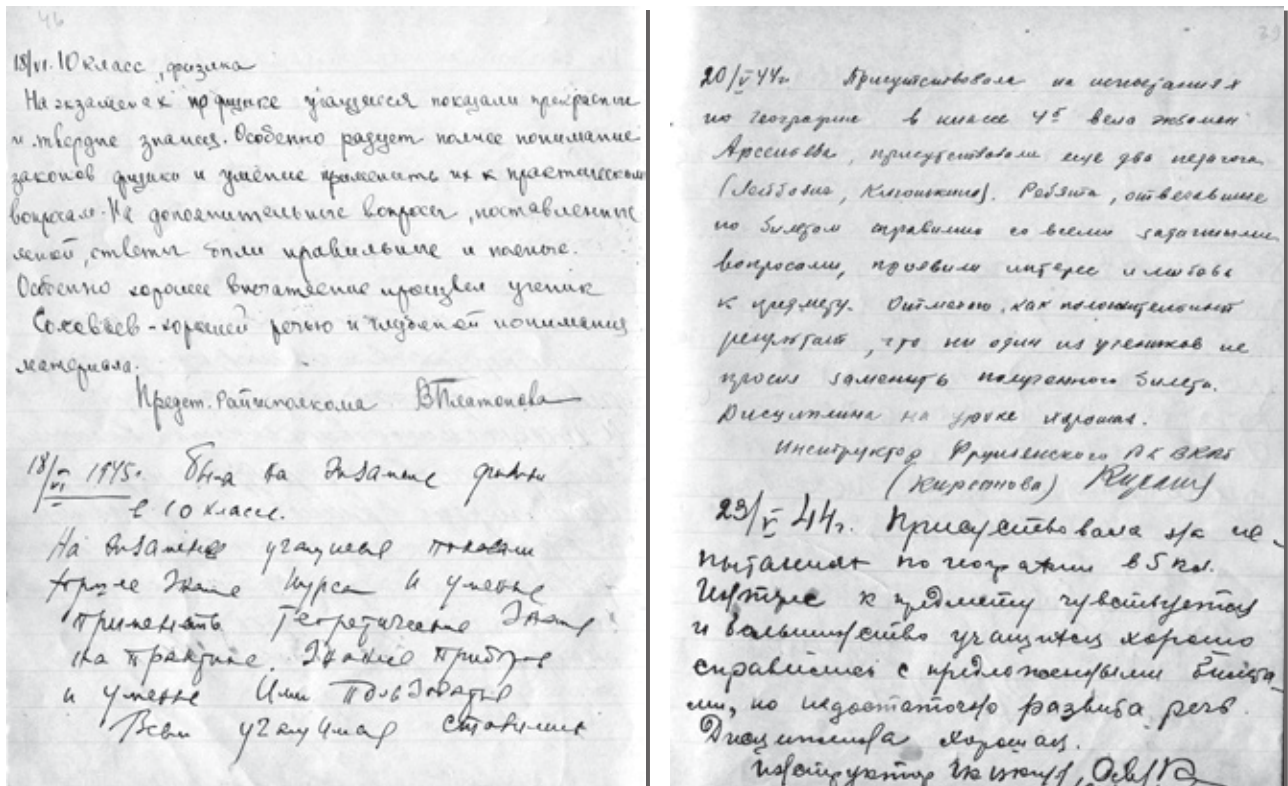 46
18/VI. 10 класс, физика
На экзаменах по физике учащиеся показали прекрасные
и твердые знания. Особенно радует полное понимание
законов физики и умение применить их к практическим
вопросам. На дополнительные вопросы, поставленные
мной, ответы были правильные и полные.
Особенно хорошее впечатление произвел ученик
Соловьев - хорошей речью и глубокой понимания
материала.
Предст. Райисполкома ВПлатонова
18/VI 1945г. Была на экзамене физики
в 10 классе.
На экзамене учащиеся показали
хорошее знание курса и умение
применять теоретические знания
на практике. Знание приборов
и умение ими пользоваться
Всем учащимся ставились
39
20/V 44г. Присутствовала на испытаниях
по географии в классе 4б вела экзамен
Арсеньева, присутствовали еще два педагога
(Лейбовна, Клюшкина). Ребята, отвечавшие
по билетам справились со всеми заданными
вопросами, проявили интерес и любовь
к предмету. Отмечаю, как положительный
результат, что ни один из учеников не
просил заменить полученного билета.
Дисциплина на уроке хорошая.
Инструктор Фрунзенского РК ВКПб
(Кирсанова)
23/V 44г. Присутствовала на ис-
пытаниях по географии в 5 кл.
Интерес к предмету чувствуется
и большинство учащихся хорошо
справились с предложенными билета-
ми, но недостаточно развита речь.
Дисциплина хорошая.
Инструктор